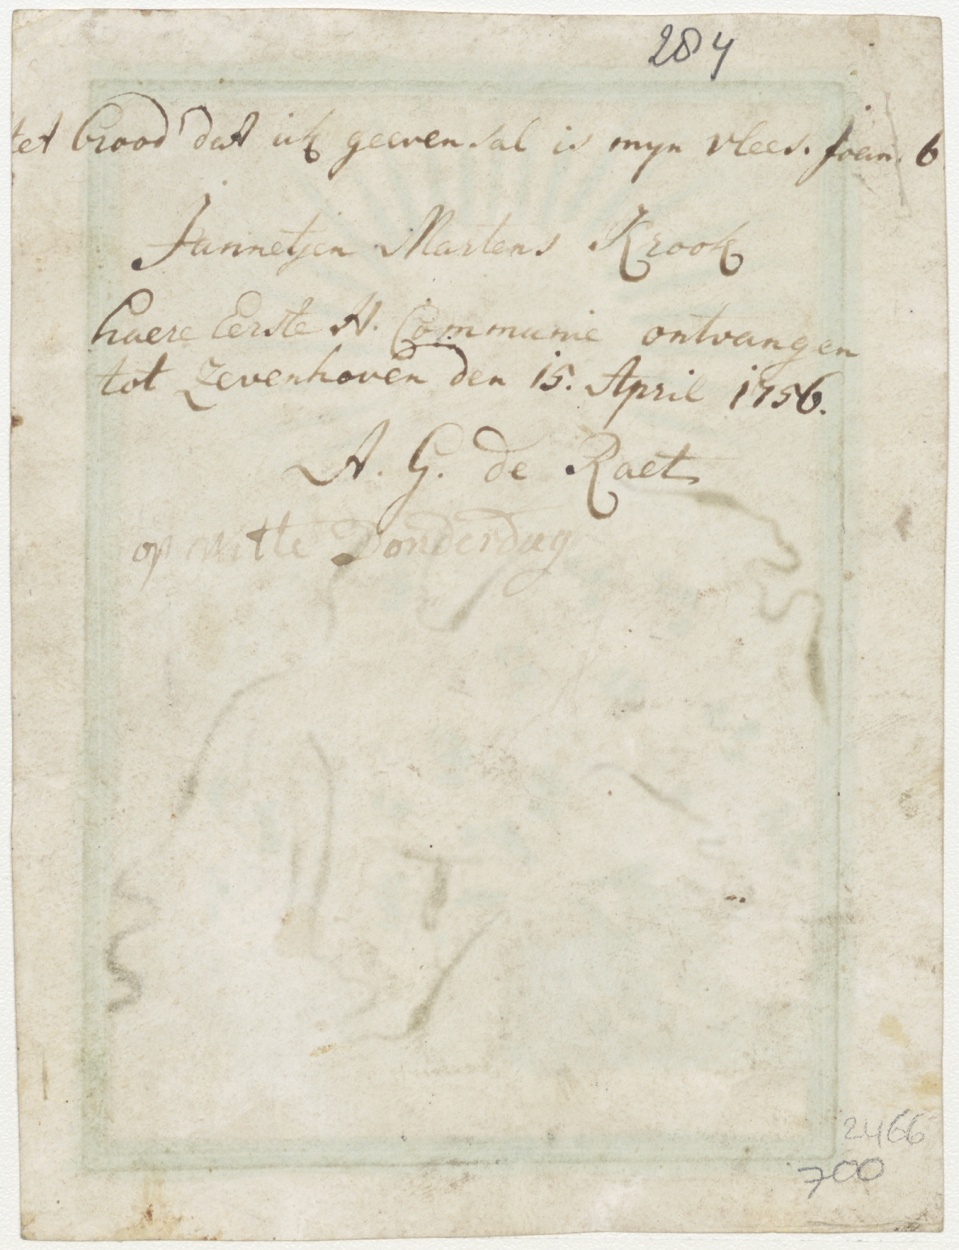 284
tet brood dat ick geeven sal is myn vlees. Joan. 6
Jannetjen Martens Krook
haere Eerste H. Communie ontvangen
tot Zevenhoven den 15. April 1756.
A. G. de Raet
op witte Donderdag
2466
700